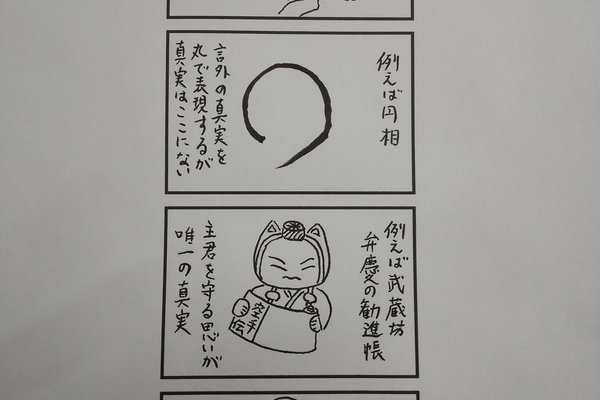 例えば円相
言外の真実を
丸で表現するが
真実はここにない
例えば武蔵坊
弁慶の勧進帳
空手
伝
主君を守る思いが
唯一の真実